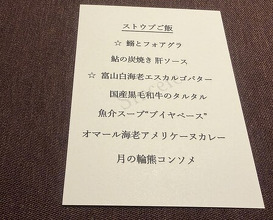 ストウブご飯
☆ 鰯とフォアグラ
鮎の炭焼き 肝ソース
☆ 富山白海老エスカルゴバター
国産黒毛和牛のタルタル
魚介スープ"ブイヤベース"
オマール海老アメリケーヌカレー
月の輪熊コンソメ